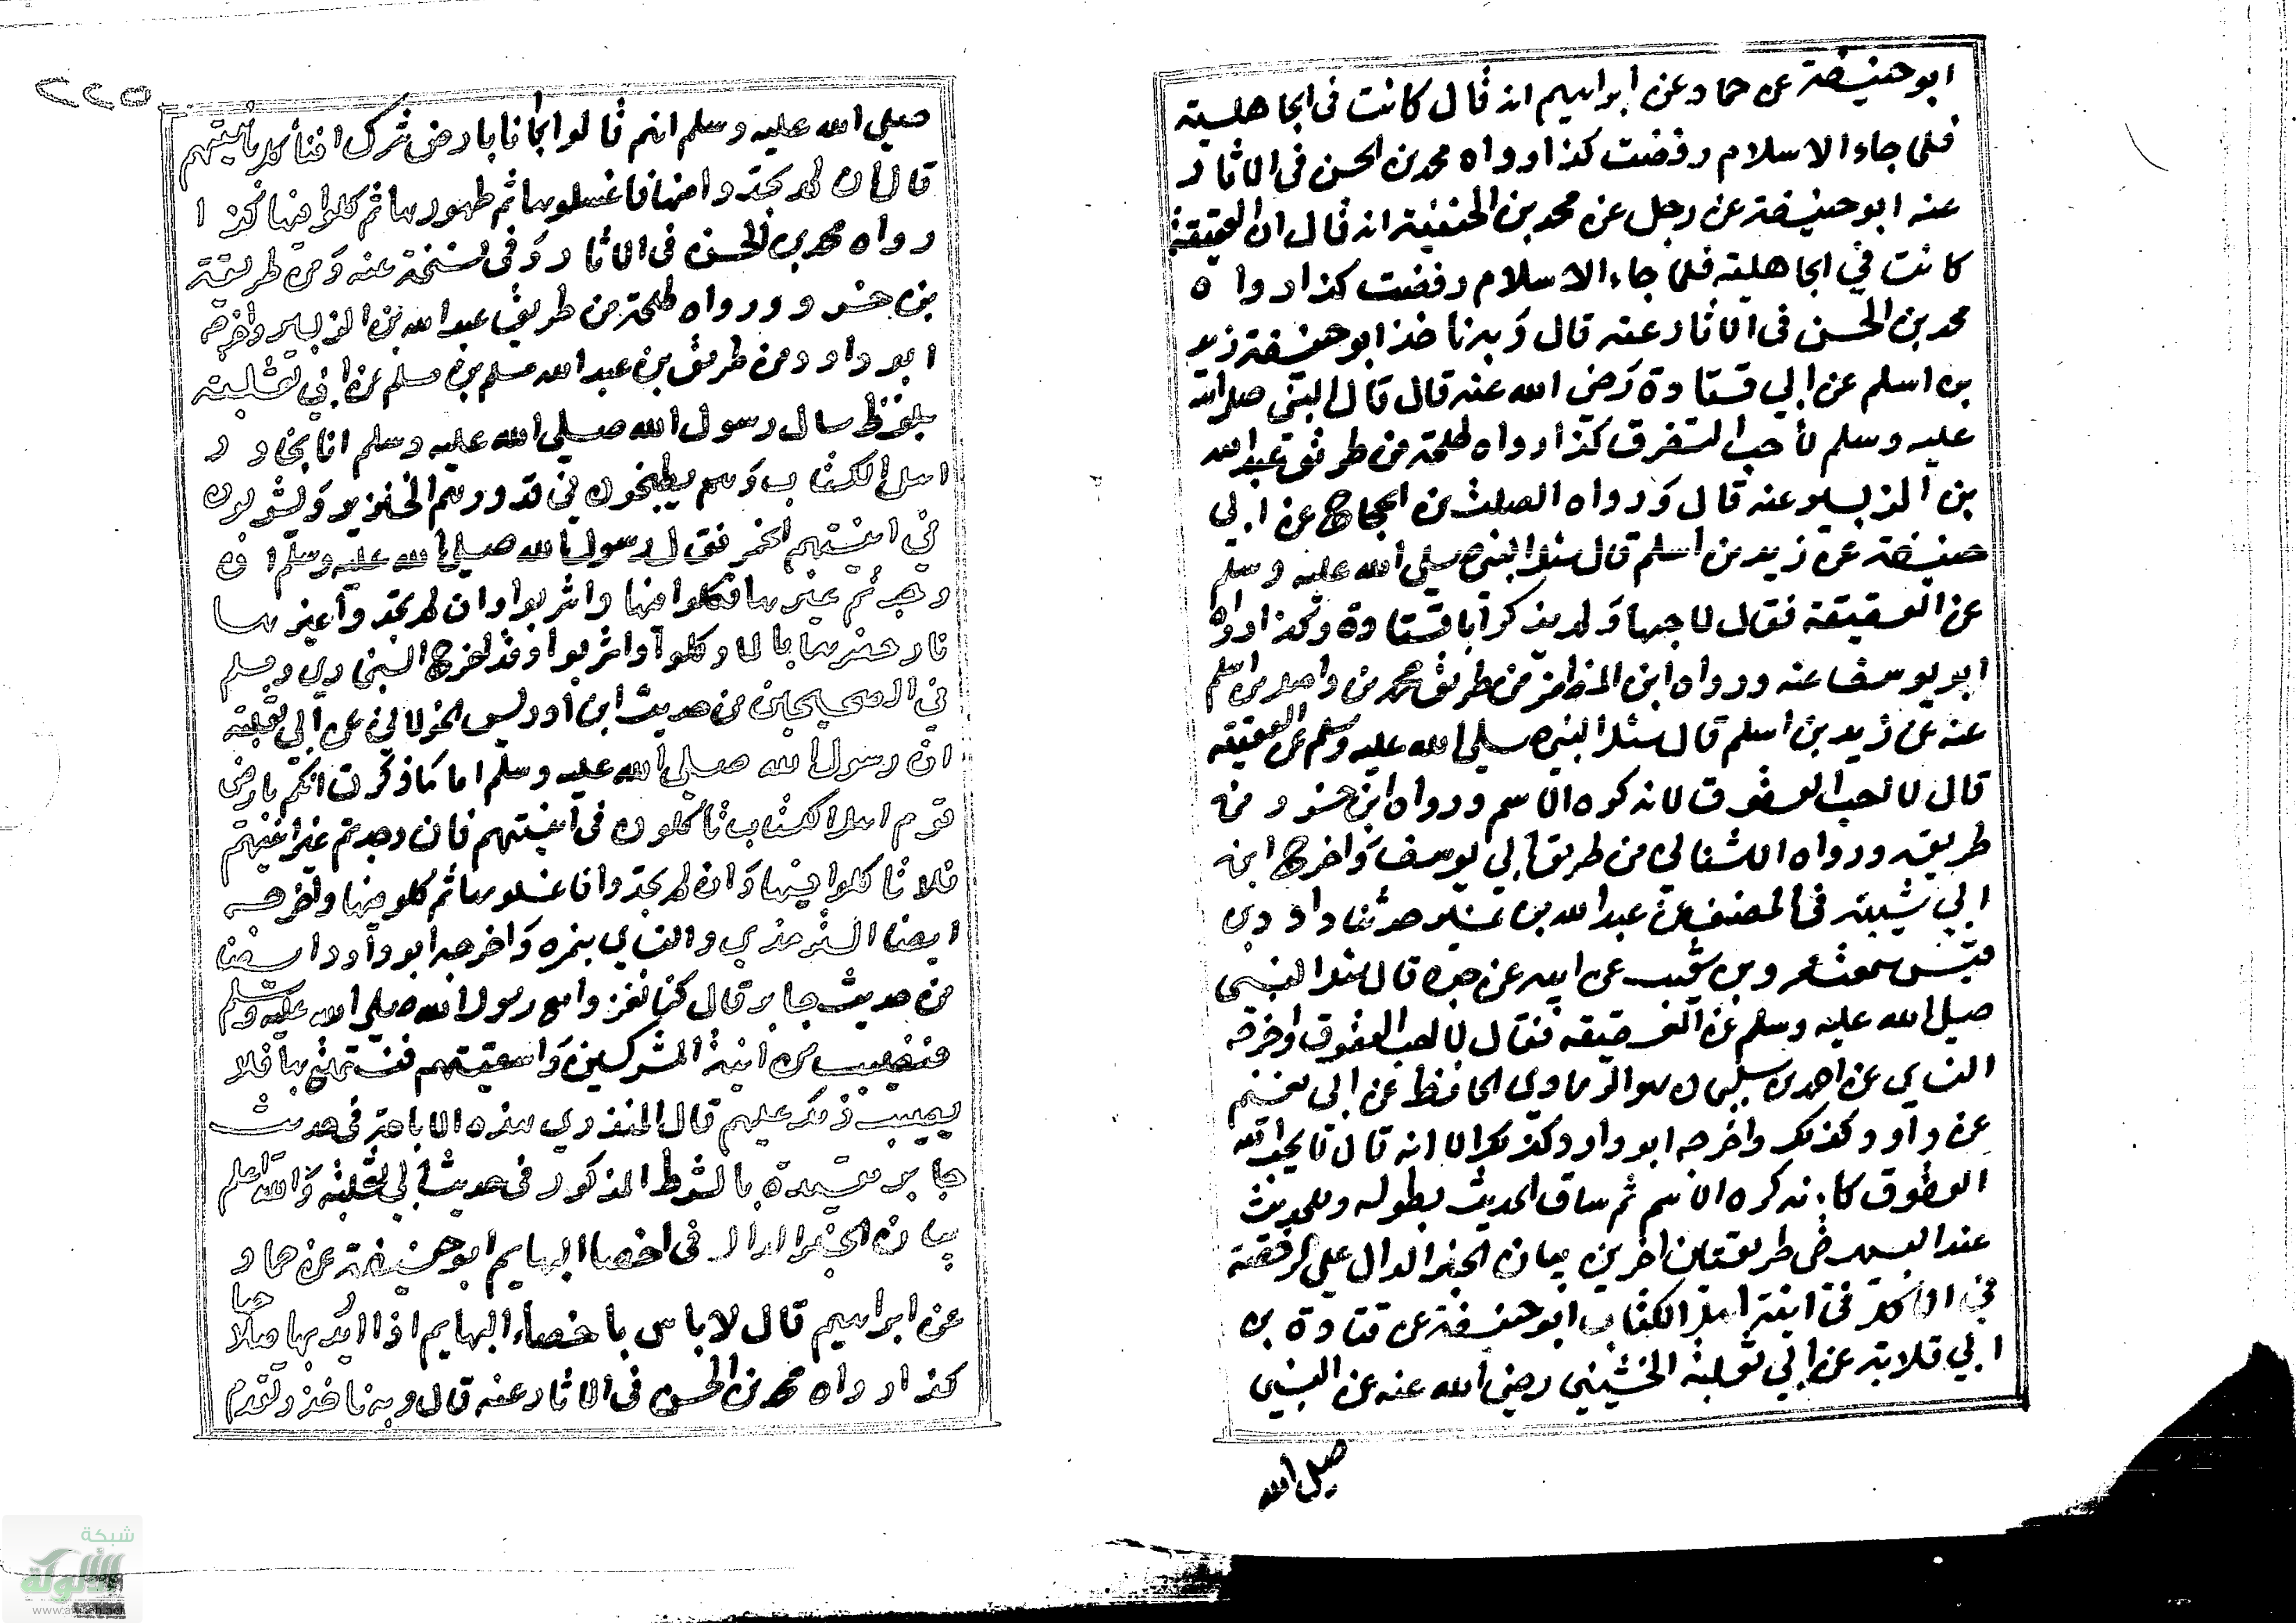 ابو حنيفة عن حماد عن ابراهيم انه قال كانت فى الجاهلية
فلما جاء الاسلام رفضت كذا رواه محمد بن الحسن فى الاثار
عنه ابو حنيفة عن رجل عن محمد بن الحنفية انه قال ان العقيقة
كانت في الجاهلية فلما جاء الاسلام رفضت كذا رواه
محمد بن الحسن فى الاثار عنه قال وَبه ناخذ ابو حنيفة زيد
بن اسلم عن ابي قتادة رَضي الله عنه قال قال النبى صلى الله
عليه وسلم لا احب كذا رواه طلحة من طريق عبد الله
بن الزبير عنه قال وَرواه الصلت بن الحجاج عن ابي
حنيفة عن زيد بن اسلم قال سئل النبى صلى الله عليه وسلم
عن العقيقة فقال لا احبها وَلم يذكر ابا قتادة وكذا رواه
ابو يوسف عنه ورواه ابن المظفر من طريق محمد بن واصل بن اسلم
عنه عن زيد بن اسلم قال سئل النبى صلى الله عليه وسلم عن العقيقة
قال لا احب العقوق كانه كره الاسم ورواه ابن خسرو من
طريقه ورواه من طريق ابي يوسف وَاخرج ابن
ابي شيبة فى المصنف عن عبد الله بن نمير حدثنا داود بن
قيس سمعت عمرو بن شعيب عن ابيه عن جده قال سئل النبى
صلى الله عليه وسلم عن العقيقه فقال لا احب العقوق واخرجه
النساي عن احمد بن سليمان هو الرهاوى الحافظ عن ابى نعيم
عن داود كذلك واخرجه ابو داود كذلك الا انه قال لا يحب الله
العقوق كانه كره الاسم ثم ساق الحديث بطوله وللحديث
عند البيهقى طريقتان اخرين بيان الخبر الدال على الرخصة
في الاكل فى انية اهل الكتاب ابو حنيفة عن قتادة بن
ابي قلابة عن ابي ثعلبة الخشيني رضي الله عنه عن النبي
صلى الله
صلى الله عليه وسلم انهم قالوا انا بارض شرك افنأكل بانيتهم
قال ان لم تجدوا منها فاغسلوها ثم طهورها ثم كلوا فيها كذا
رواه محمد بن الحسن فى الاثار وَفى نسخة عنه وَمن طريقة
بن خسرو ورواه طلحة من طريق عبد الله بن الزبير واخرجه
ابو داود من طريق بن عبد الله مسلم بن مسلم عن ابي ثعلبة
بلفظ سال رسول الله صلى الله عليه وسلم انا نجاور
اهل الكتاب وَهم يطبخون في قدورهم الخنزير وَيشربون
في انيتهم الخمر فقال رسول الله صلى الله عليه وسلم ان
وجدتم غيرها فكلوا فيها واشربوا وان لم تجدوا غيرها
فارحضوها بالماء وكلوا واشربوا وقد اخرج
في الصحيحين من حديث ابن ادريس الخولاني عن ابي ثعلبة
ان رسول الله صلى الله عليه وسلم اما ما ذكرت انكم بارض
قوم اهل الكتاب تاكلون فى انيتهم فان وجدتم غير انيتهم
فلا تاكلوا فيها وَان لم تجدوا فاغسلوها ثم كلوا فيها واخرجه
ايضا الترمذي والنساي بنحوه وَاخرجه ابو داود ايضا
من حديث جابر قال كنا نغزوا مع رسول الله صلى الله عليه وسلم
فنصيب من انية المشركين وَاسقيتهم فنستمتع بها فلا
يعيب ذلك عليهم قال المنذري هذه الاباحة فى حديث
جابر مقيدة بالشرط المذكور فى حديث ابي ثعلبة وَالله اعلم
بيان الخبر الدال فى اخصا البهايم ابو حنيفة عن حماد
عن ابراهيم قال لاباس باخصاء البهايم اذا اريد بها صلاحها
كذا رواه محمد بن الحسن فى الاثار عنه قال وبه ناخذ وتقدم
شبكة
الألوكة